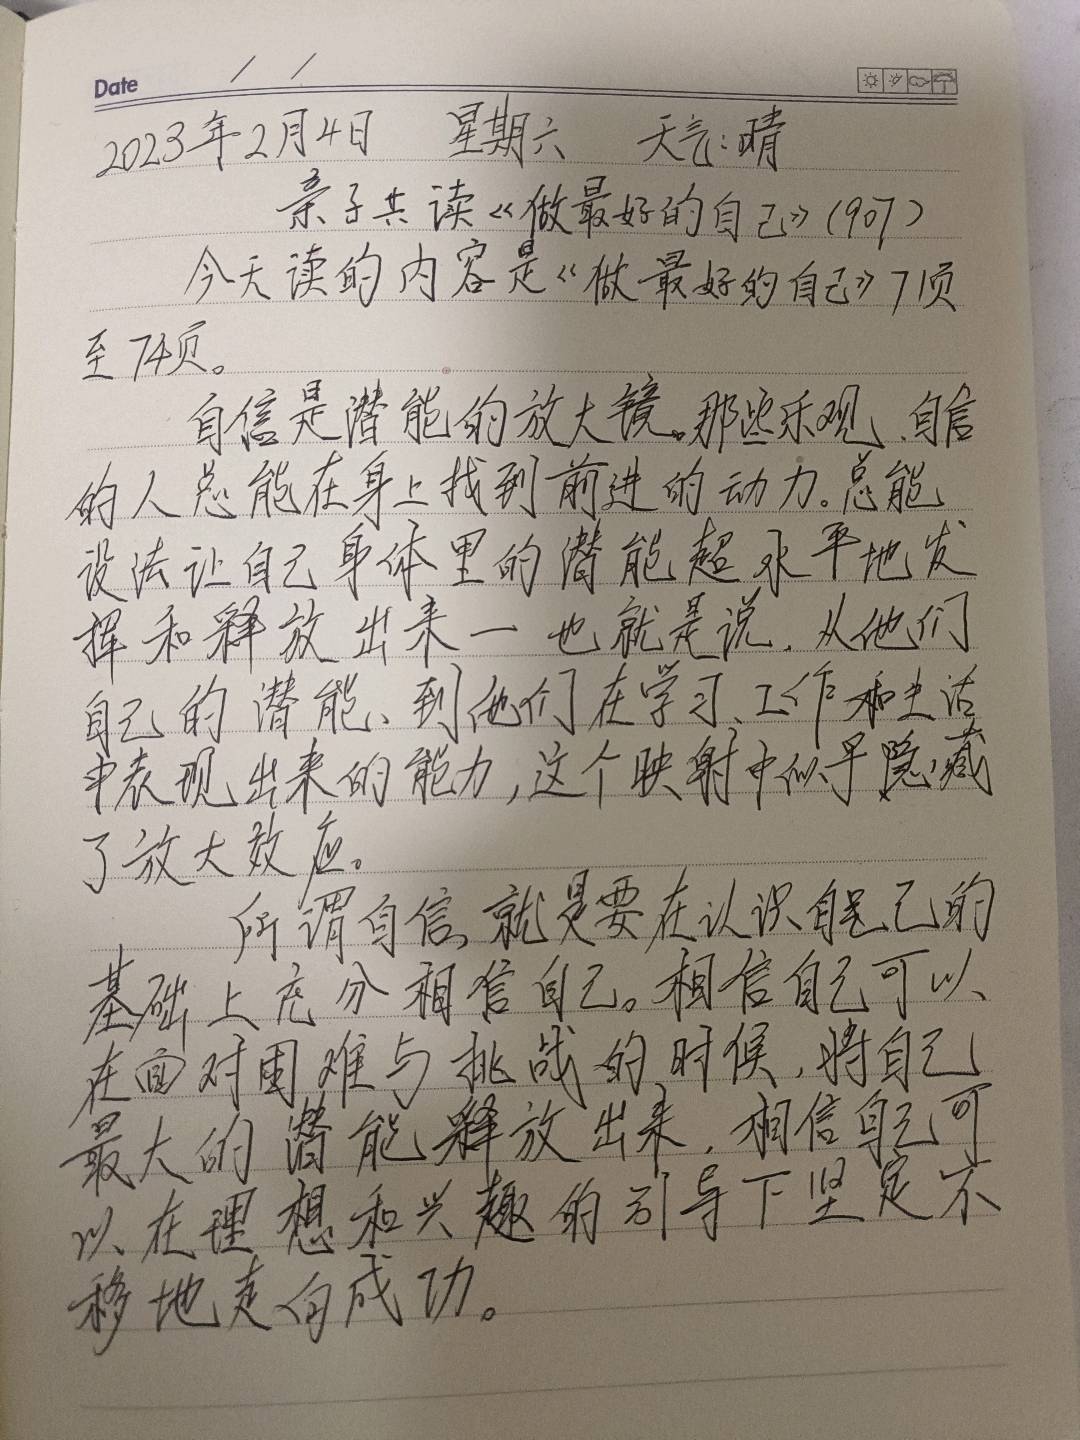 Date / /
2023年2月4日 星期六 天气:晴
亲子共读《做最好的自己》(907)
今天读的内容是《做最好的自己》71页
至74页。
自信是潜能的放大镜。那些乐观、自信
的人总能在身上找到前进的动力。总能
设法让自己身体里的潜能超水平地发
挥和释放出来一也就是说,从他们
自己的潜能、到他们在学习、工作和生活
中表现出来的能力,这个映射中似乎隐藏
了放大效应。
所谓自信,就是要在认识自己的
基础上充分相信自己。相信自己可以
在面对困难与挑战的时候,将自己
最大的潜能释放出来,相信自己可
以在理想和兴趣的引导下坚定不
移地走向成功。